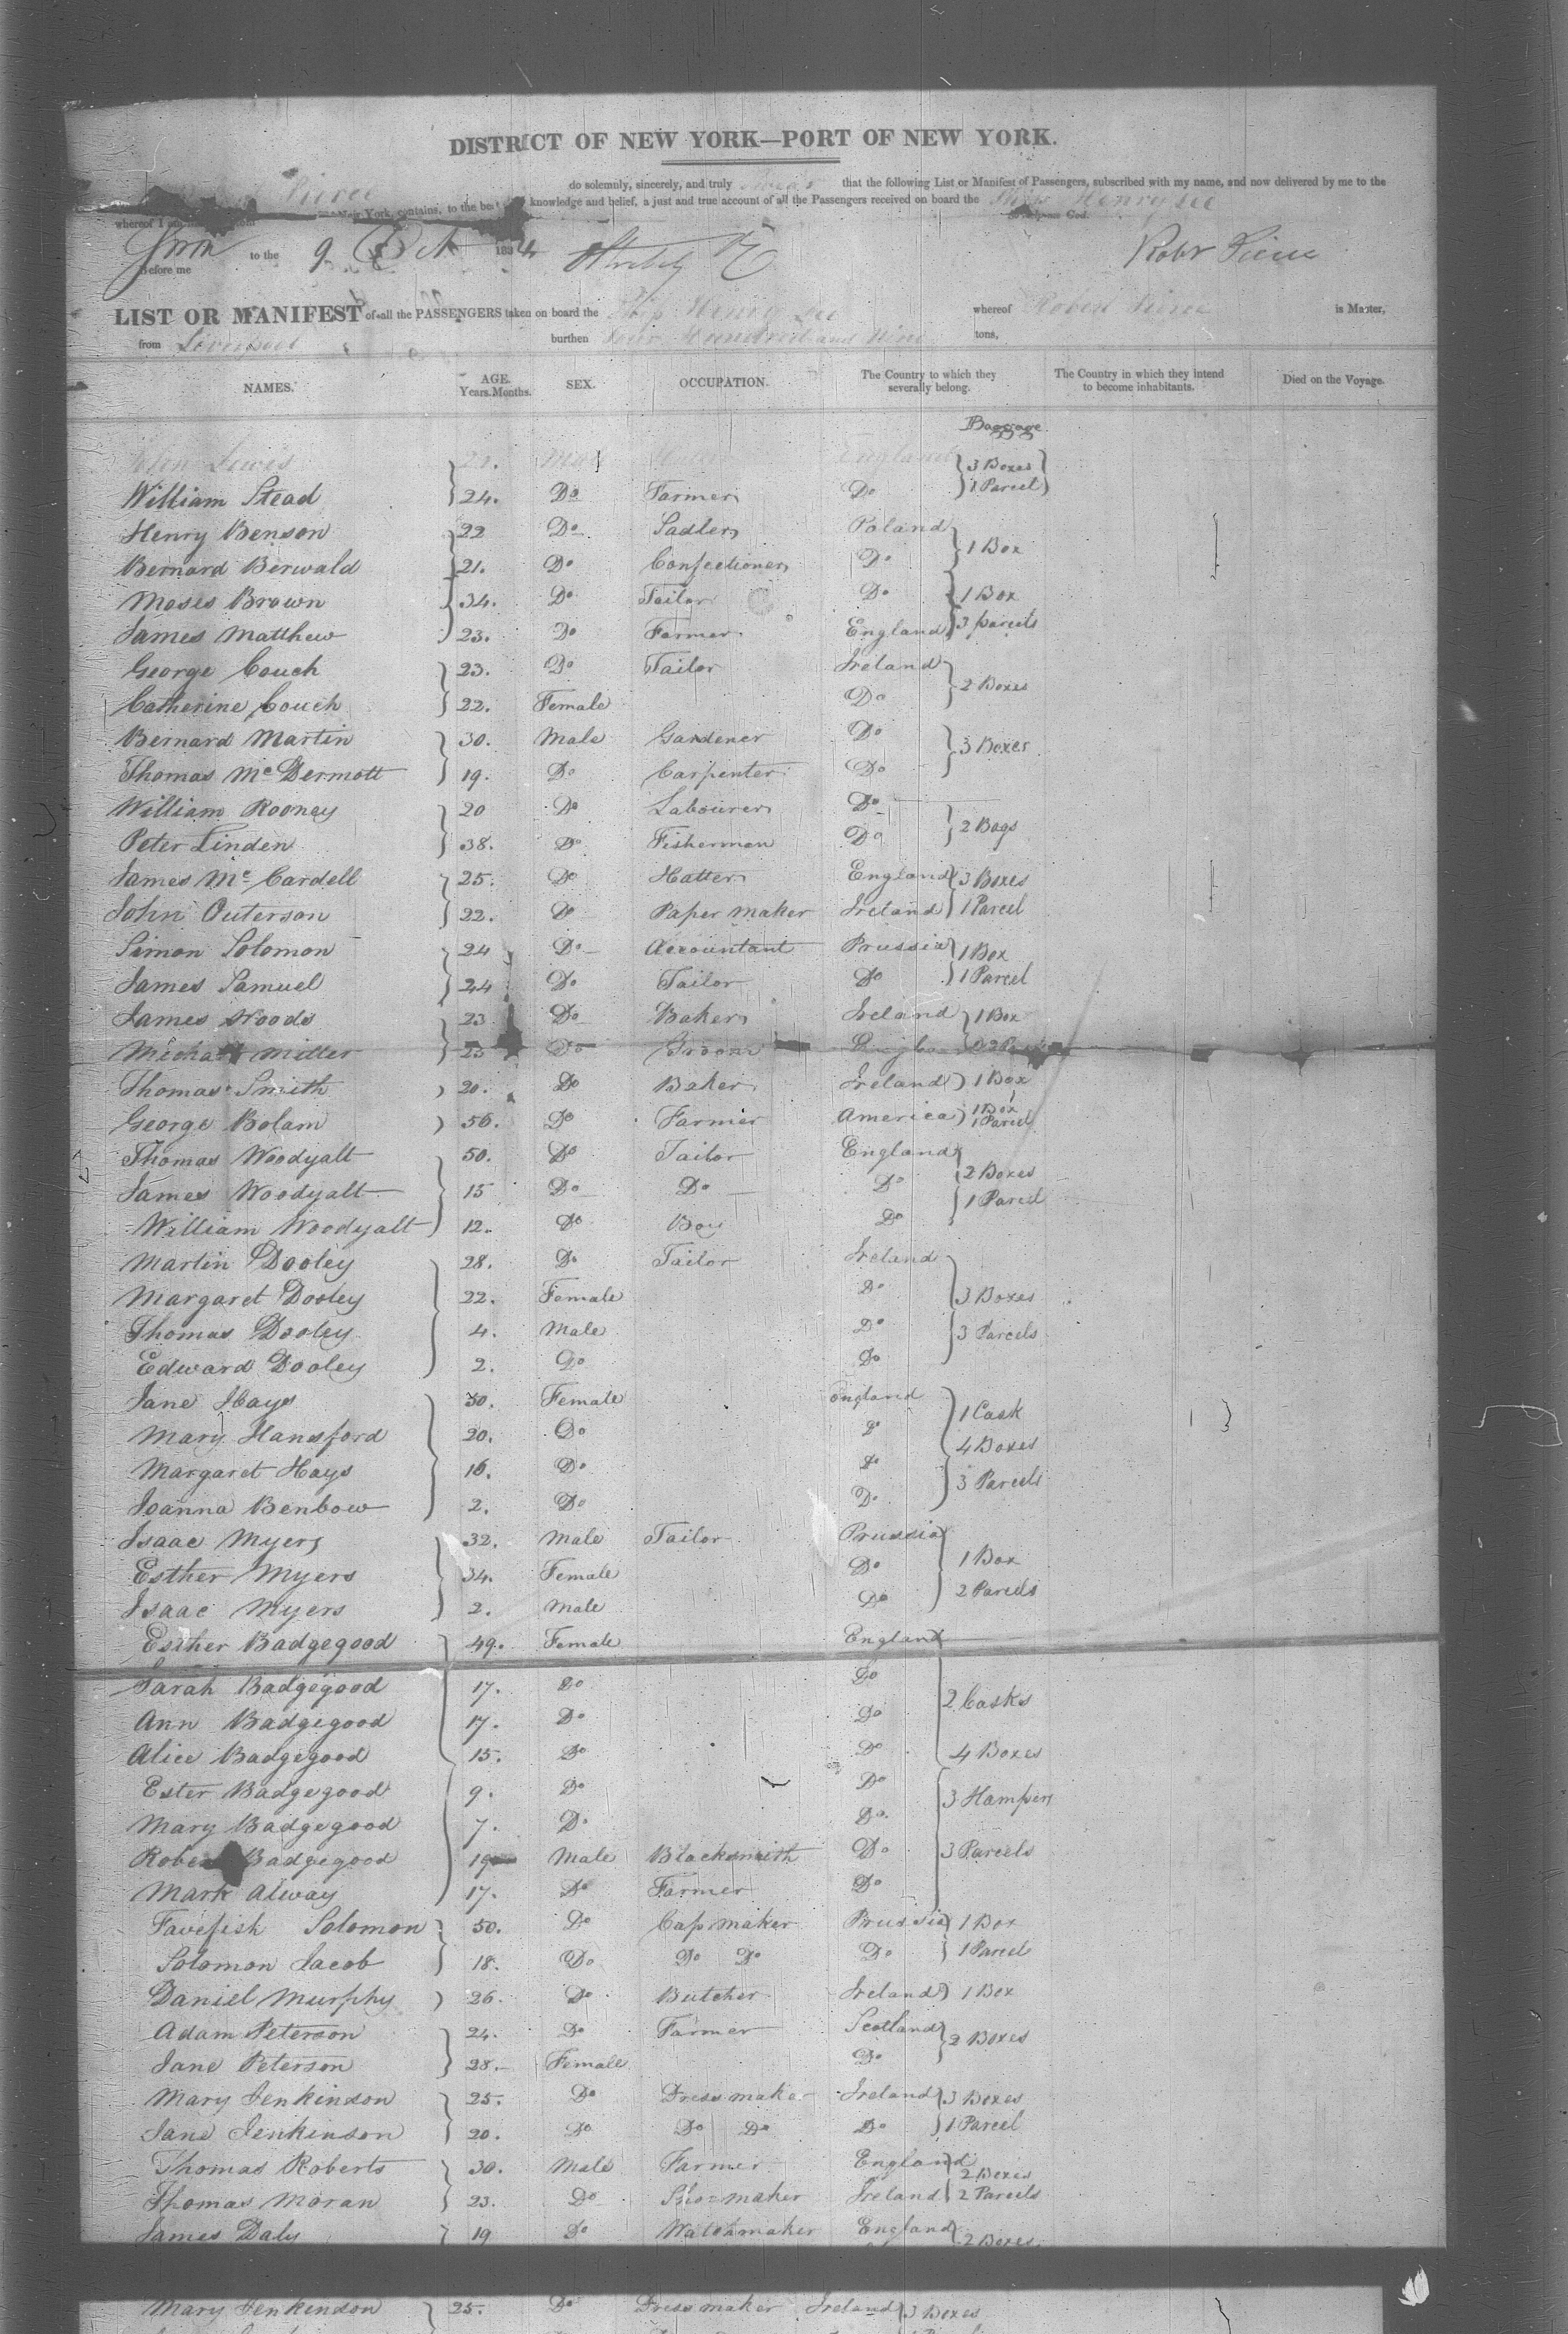 DISTRICT OF NEW YORK—PORT OF NEW YORK.
Pierce do solemnly, sincerely, and truly that the following List or Manifest of Passengers, subscribed with my name, and now delivered by me to the
New York, contains, to the best knowledge and belief, a just and true account of all the Passengers received on board the Ship Henry
whereof I am
Sworn to the 9 Oct 1834 Robt Pierce
Before me
LIST OR MANIFEST of all the PASSENGERS taken on board the Ship Henry whereof Robert Pierce is Master,
from Liverpool burthen Four Hundred and Nine tons,
NAMES. AGE. Years. Months. SEX. OCCUPATION. The Country to which they severally belong. The Country in which they intend to become inhabitants. Died on the Voyage.
Baggage
John Lewis 21. Male England 3 Boxes
William Stead 24. Do Farmer Do 1 Parcel
Henry Benson 22 Do Sadler Poland
Bernard Berwald 21. Do Confectioner Do 1 Box
Moses Brown 34. Do Tailor Do 1 Box
James Matthew 23. Do Farmer England 3 parcels
George Couch 23. Do Tailor Ireland
Catherine Couch 22. Female Do 2 Boxes
Bernard Martin 30. Male Gardener Do 3 Boxes
Thomas McDermott 19. Do Carpenter Do
William Rooney 20 Do Labourer Do
Peter Linden 38. Do Fisherman Do 2 Bags
James McCardell 25. Do Hatter England 3 Boxes
John Outerson 22. Do Paper maker Ireland 1 Parcel
Simon Solomon 24 Do Accountant Prussia 1 Box
James Samuel 24 Do Tailor Do 1 Parcel
James Woods 23 Do Baker Ireland 1 Box
Miller 23 Do Groom
Thomas Smith 20. Do Baker Ireland 1 Box
George Bolam 56. Do Farmer America 1 Box 1 Parcel
Thomas Woodyatt 50. Do Tailor England
James Woodyatt 15 Do Do Do 2 Boxes 1 Parcel
William Woodyatt 12. Do Boy Do
Martin Dooley 28. Do Tailor Ireland
Margaret Dooley 22. Female Do 3 Boxes
Thomas Dooley 4. Male Do 3 Parcels
Edward Dooley 2. Do Do
Jane Hays 30. Female England 1 Cask
Mary Hansford 20. Do Do 4 Boxes
Margaret Hays 16. Do Do 3 Parcels
Joanna Benbow 2. Do Do
Isaac Myers 32. Male Tailor Prussia
Esther Myers 34. Female Do 1 Box
Isaac Myers 2. Male Do 2 Parcels
Esther Badgegood 49. Female England
Sarah Badgegood 17. Do Do 2 Casks
Ann Badgegood 17. Do Do
Alice Badgegood 15. Do Do 4 Boxes
Ester Badgegood 9. Do Do 3 Hampers
Mary Badgegood 7. Do Do
Robert Badgegood 19 Male Blacksmith Do 3 Parcels
Mark Alway 17. Do Farmer Do
Solomon 50. Do Cap maker Prussia 1 Box
Solomon Jacob 18. Do Do Do Do 1 Parcel
Daniel Murphy 26. Do Butcher Ireland 1 Box
Adam Peterson 24. Do Farmer Scotland 2 Boxes
Jane Peterson 28. Female Do
Mary Jenkinson 25. Do Dress maker Ireland 3 Boxes
Jane Jenkinson 20. Do Do Do Do 1 Parcel
Thomas Roberts 30. Male Farmer England 2 Boxes
Thomas Moran 23. Do Shoemaker Ireland 2 Parcels
James Daly 19 Do Watchmaker England 2 Boxes
Mary Jenkinson 25. Do Dress maker Ireland 3 Boxes